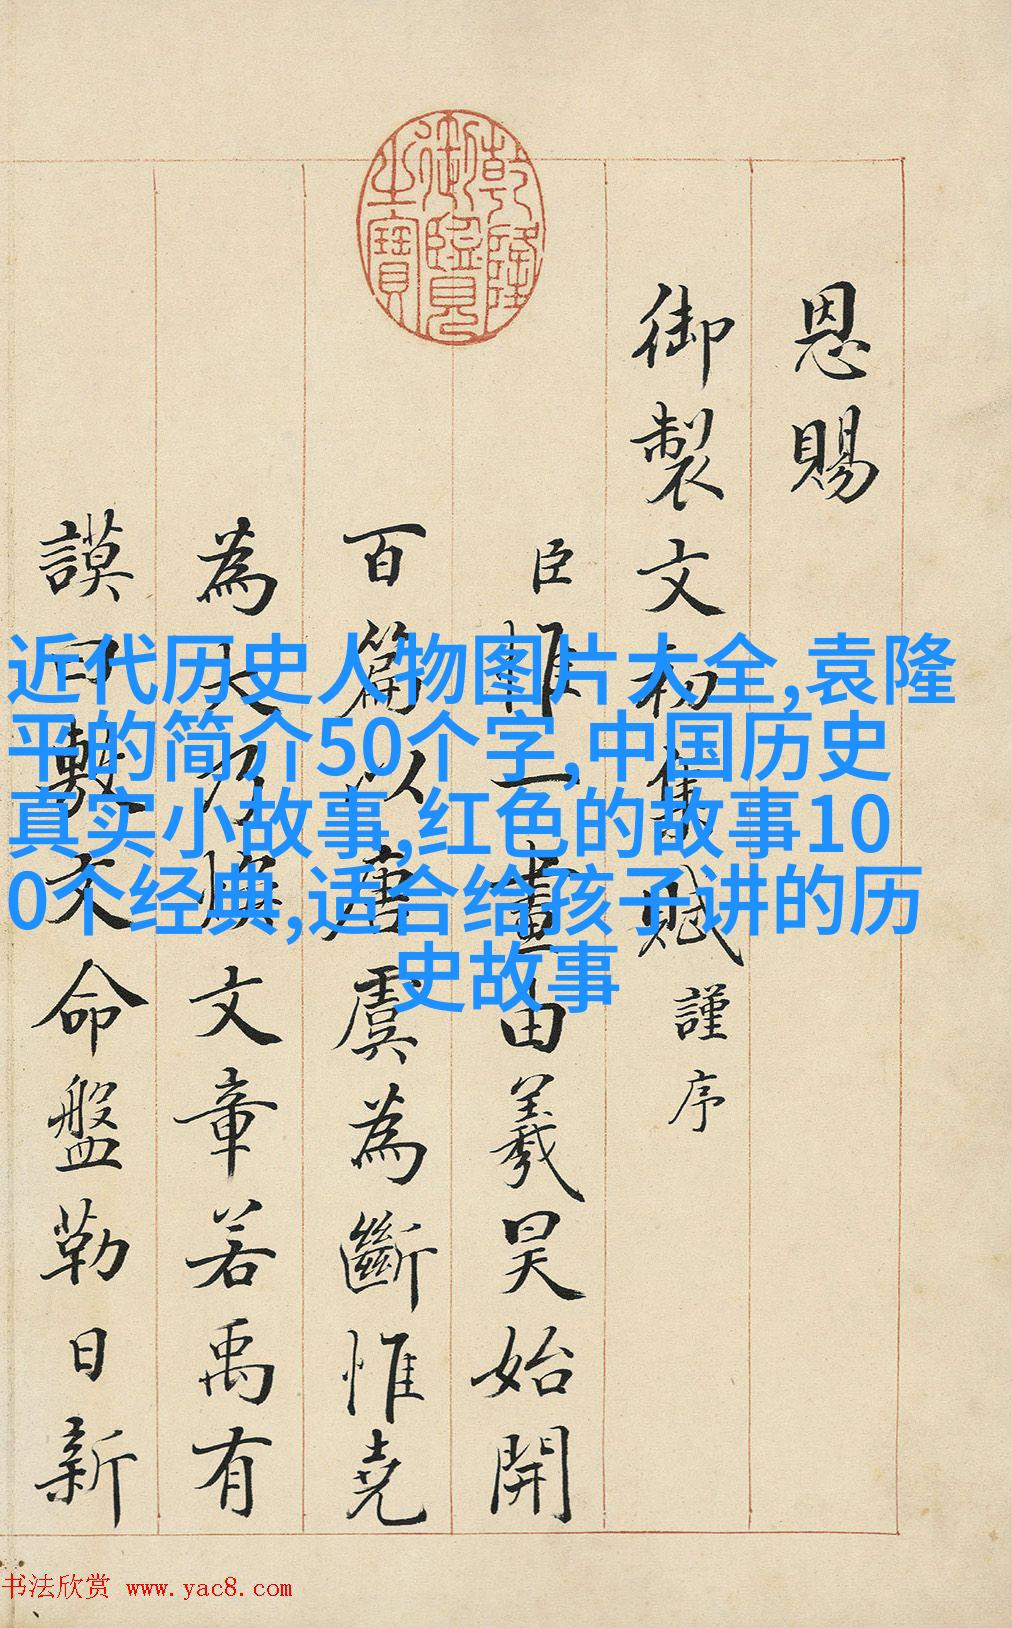 乾隆御覽之寶
恩賜
御製文初集賦謹序
臣惟一畫由羲昊始開
百篇以唐虞為斷惟堯
為大乃煥文章若禹有
謨曰敷文命盤勒日新
近代历史人物图片大全,袁隆
平的简介50个字,中国历史
真实小故事,红色的故事10
0个经典,适合给孩子讲的历
史故事
书法欣赏 www.yac8.com